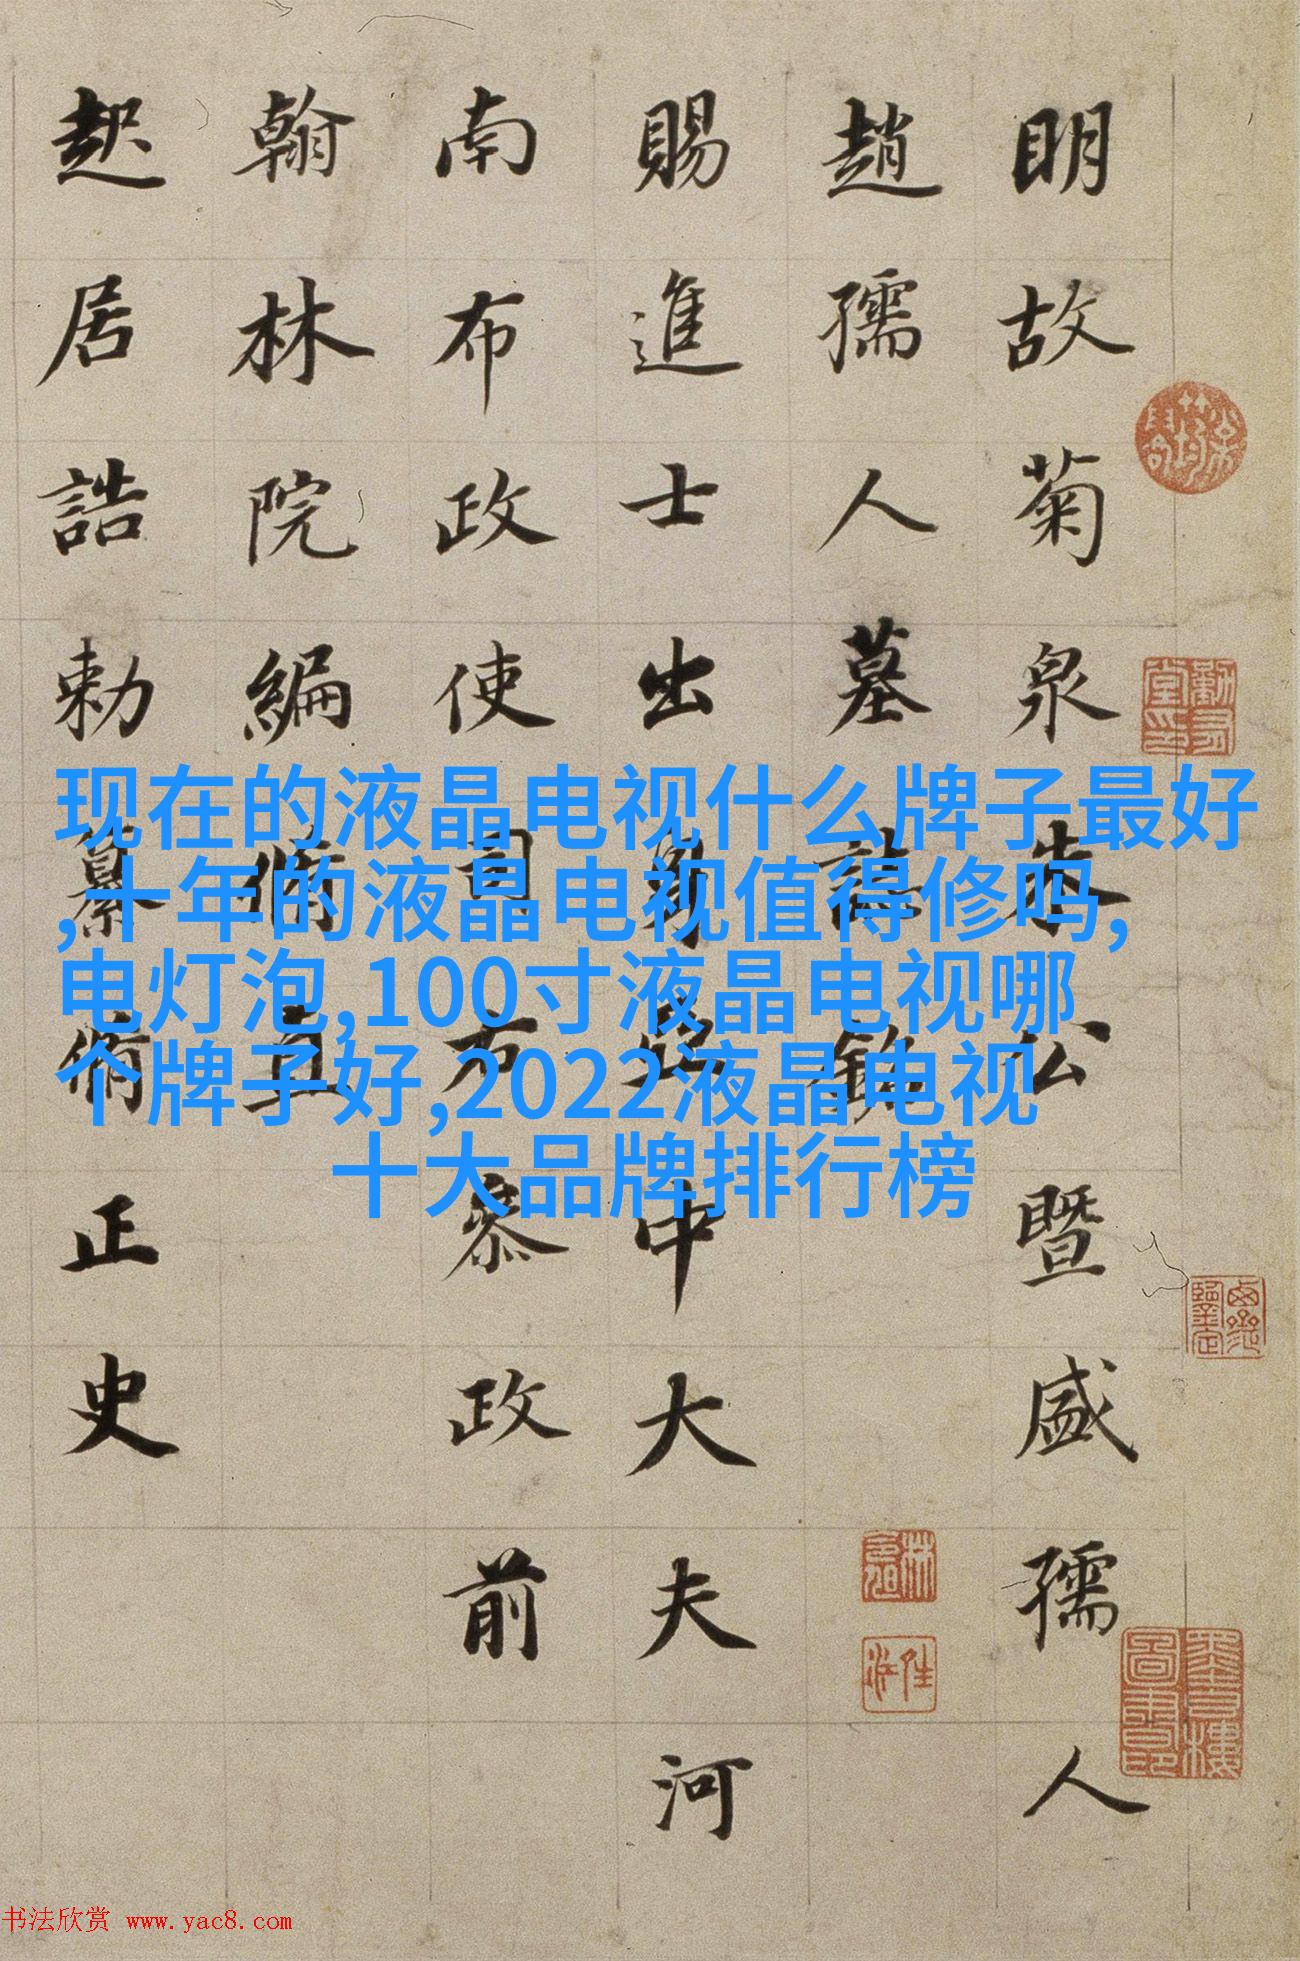 明故菊泉朱公暨盛孺人
趙孺人墓誌銘
賜進士出身亞中大夫河
南布政使司右叅政前
翰林院編脩直
起居誥勅纂脩正史
现在的液晶电视什么牌子最好
,十年的液晶电视值得修吗,
电灯泡,100寸液晶电视哪
个牌子好,2022液晶电视
十大品牌排行榜
书法欣赏 www.yac8.com